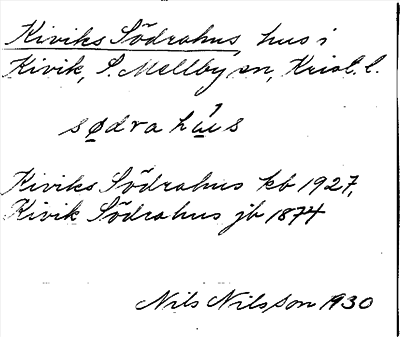 Kiviks Södrahus, hus i
Kivik, S. Mellby sn, Krist. l.
södrahùs
Kiviks Södrahus kb 1927,
Kivik Södrahus jb 1874
Nils Nilsson 1930